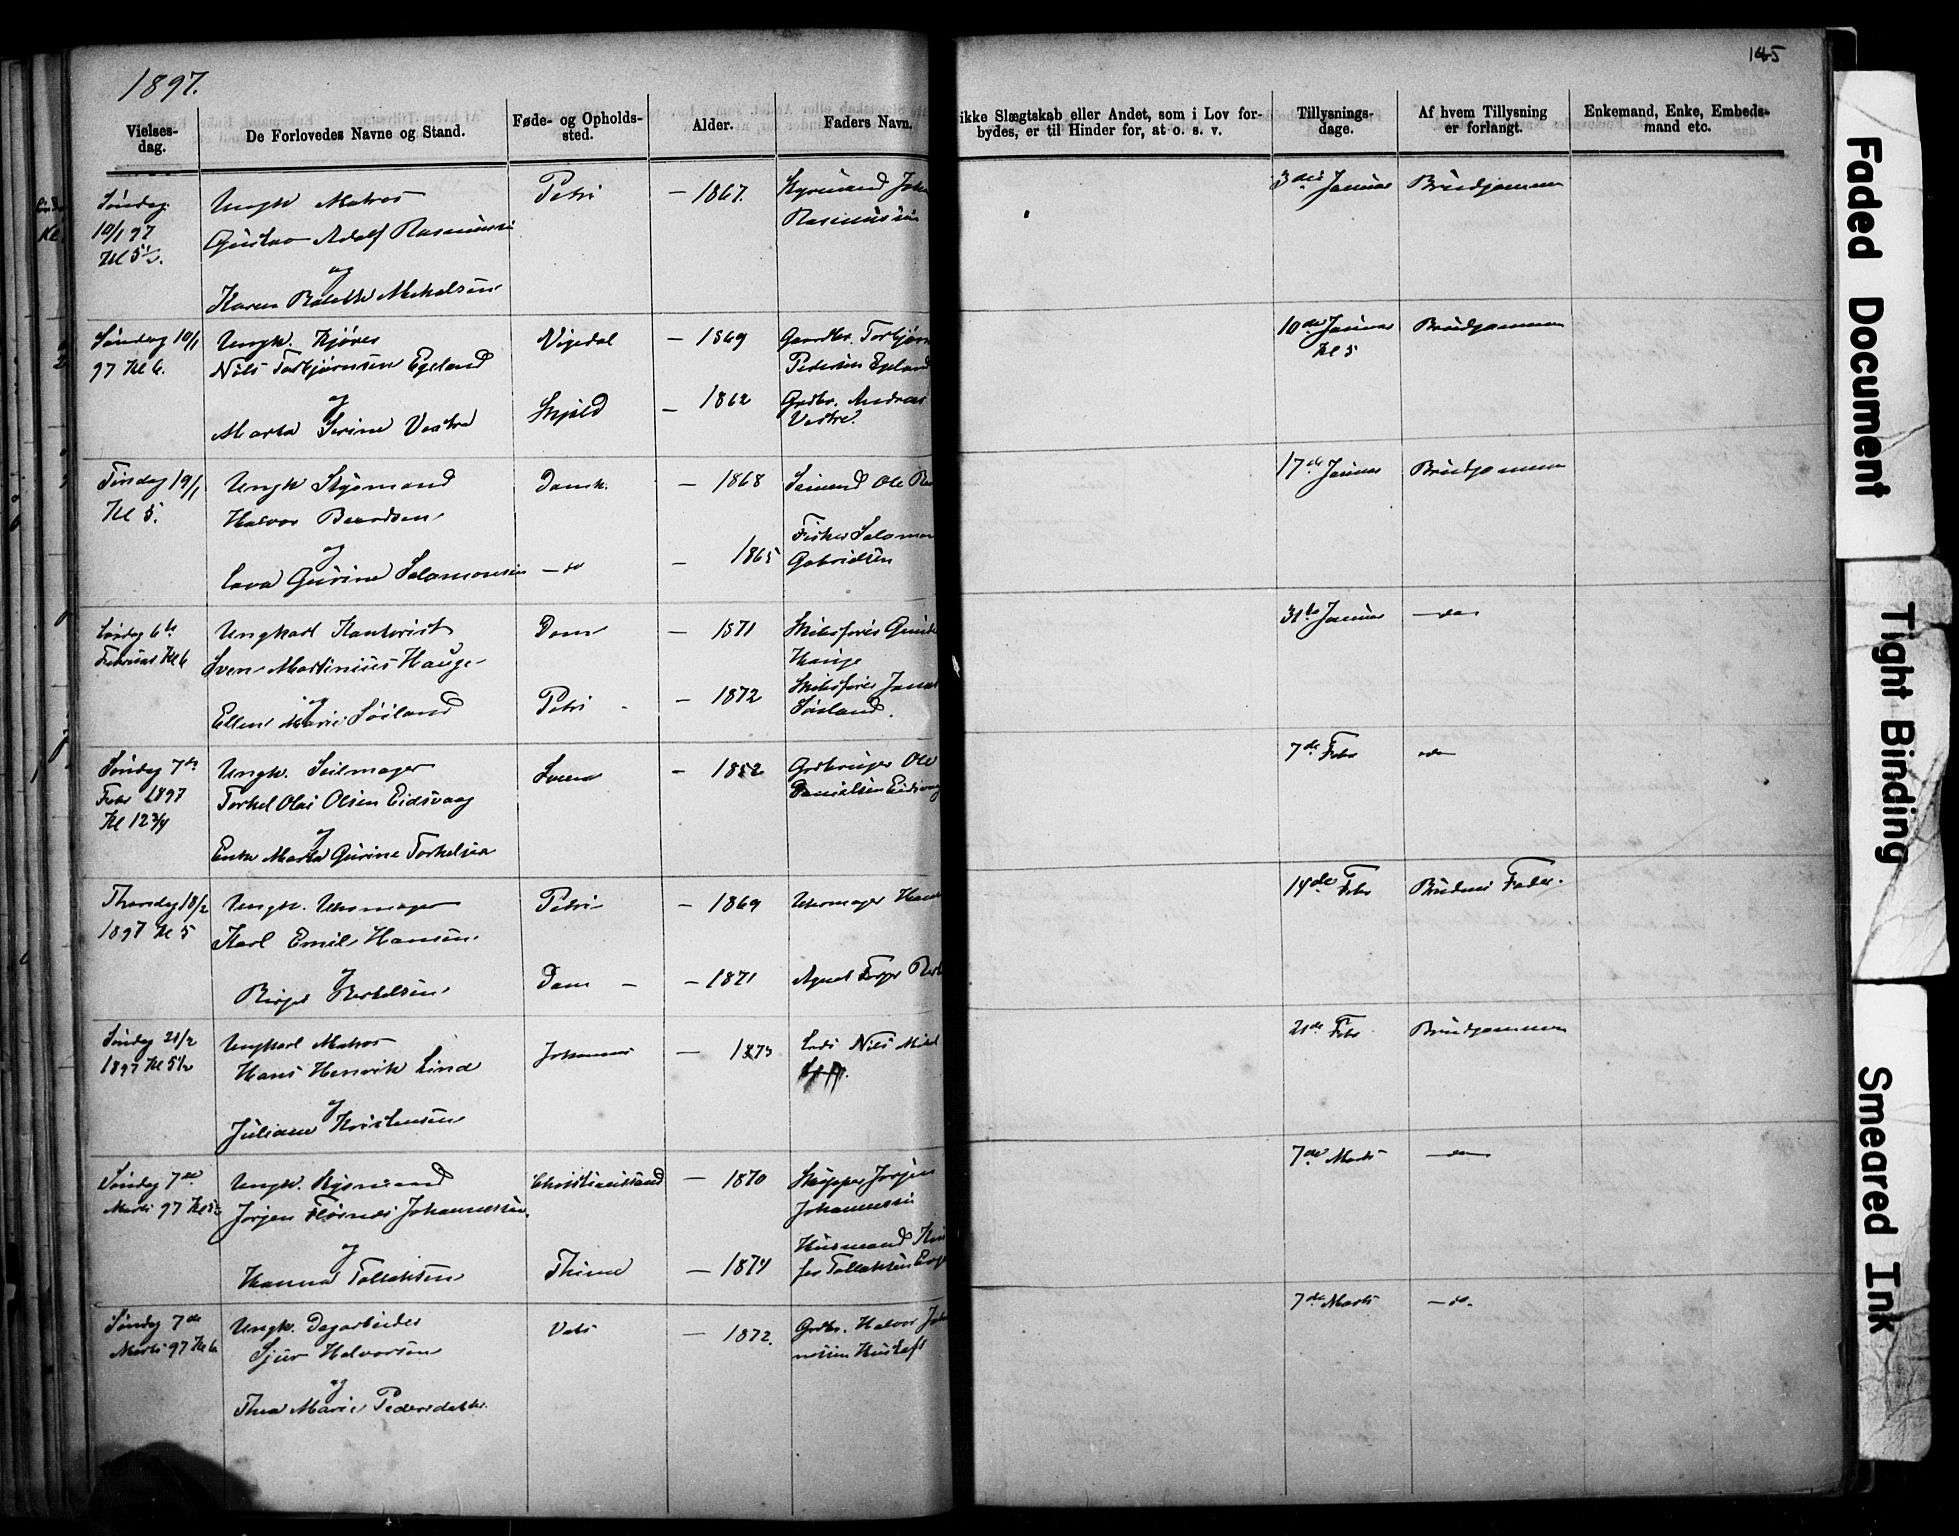 1897.
145
Vielses-
dag.
De Forlovedes Navne og Stand.
Føde- og Opholds-
sted.
Alder.
Faders Navn.
ikke Slægtskab eller Andet, som i Lov for-
bydes, er til Hinder for, at o. s. v.
Tillysnings-
dage.
Af hvem Tillysning
er forlangt.
Enkemand, Enke, Embeds-
mand etc.
Søndag
10/1 97
Kl 5½.
Ungk Matros
Gustav Adolf Rasmussen
og
Karen Mikalsen
Petri
— 1867.
Styrmand
Rasmussen
3die Januar
Brudgommen
Søndag 10/1
97 Kl 6.
Ungk. Kjører
Nils Torbjørnsen Egeland
og
Marta Serine Vestre
Vigedal
Skjold
— 1869
— 1862
Gaardbr. Torbjørn
Pedersen Egeland
Grdbr. Andreas
Vestre
10de Januar
Kl 5
Brudgommen
Tirsdag 19/1
Kl 5.
Ungk Styrmand
Halvor
og
Lava Gurine Salomonsen
Domk.
— do
— 1868
— 1865
Ole
Fisker Salomon
Gabrielsen
17de Januar
Brudgommen
6te
Februar Kl 6
Ungkarl Kontorist
Sven Martinius Hauge
og
Ellen Marie Søiland
Dom
Petri
— 1871
— 1872
Skibsfører
Hauge
Skibsfører
Søiland.
31te Januar
— do
Søndag 7de
Febr 1897
Kl 12 3/4
Ungk. Seilmager
Torkel Olai Olsen Eidsvaag
og
Enke Marta Gurine Torkelsen
— 1852
Grdbruger Ole
Danielsen Eidsvaag
7de Febr
do
Thorsdag 18/2
1897 Kl 5
Ungk. Uhrmager
Karl Emil Hansen
og
Birgit Bertelsen
Petri
Dom —
— 1869
— 1871
Uhrmager
Agent
14de Febr
Brudens Fader.
Søndag 21/2
1897 Kl 5½
Ungkarl Matros
Hans Henrik Lind
og
Juliane Kristensen
Johannes
— 1873
Lods Nils
21de Febr
Brudgommen
Søndag 7de
Marts 97 Kl 5½
Ungk. Styrmand
Jørgen Johannessen.
og
Hanna Tollaksen
Christianssand
Thime
— 1870
— 1874
Skipper Jørgen
Johannessen
Husmand
Tollaksen
7de Marts
— do
Søndag 7de
Marts 97 Kl 6
Ungk. Dagarbeider
Sjur Halvorsen
og
Thea Marie Pedersdatter
Vats
— 1872.
Grdbr. Halvor
7de Marts
— do.
Faded Document
Tight Binding
Smeared Ink